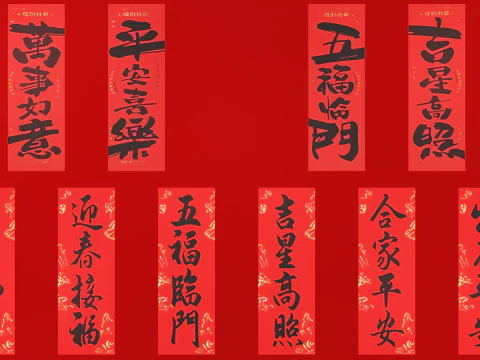 萬事如意
平安喜樂
五福临門
吉星高照
迎春接福
五福臨門
吉星高照
合家平安